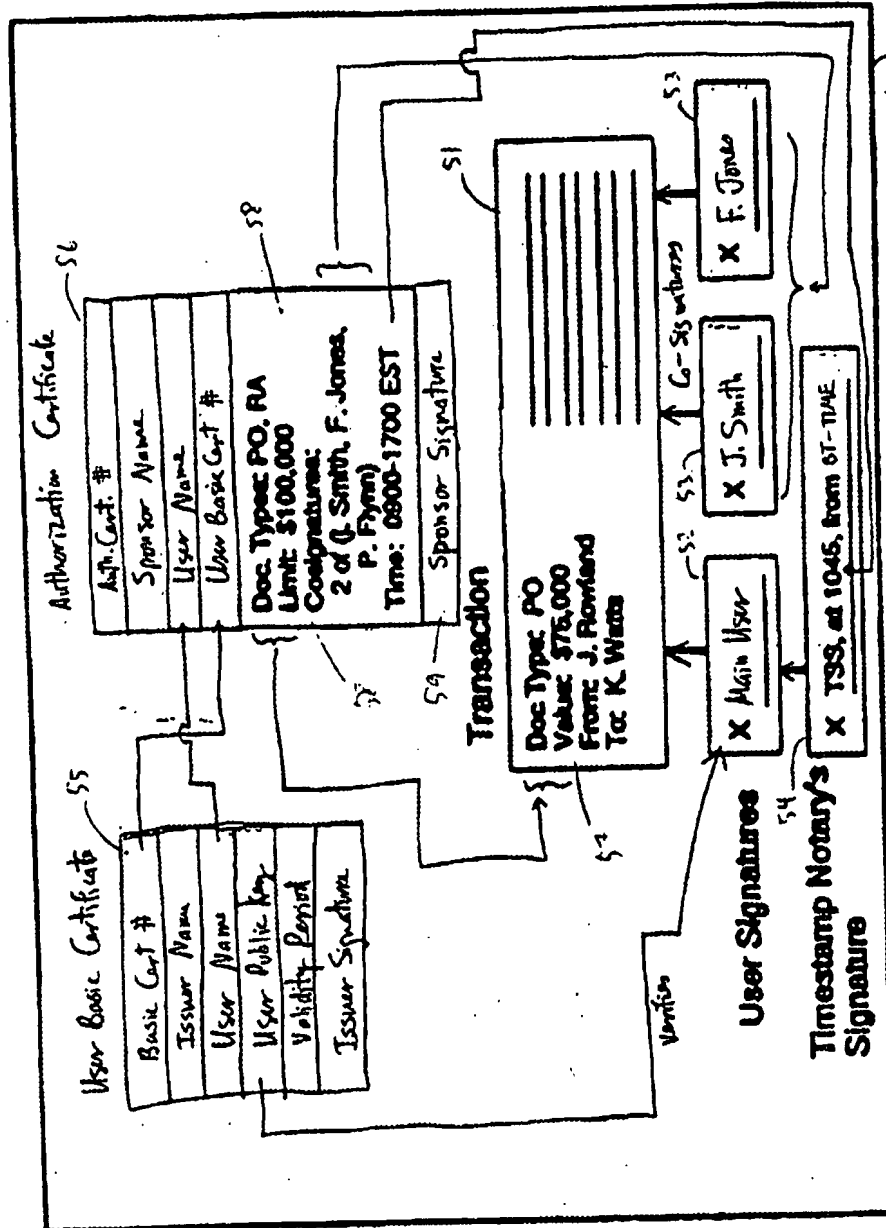 User Basic Certificate
55
Basic Cert #
Issuer Name
User Name
User Public Key
Validity Period
Issuer Signature
Authorization Certificate
56
Auth. Cert. #
Sponsor Name
User Name
User Basic Cert #
Doc. Types: PO, RA
Limit: $100,000
Cosignatures:
2 of (J. Smith, F. Jones,
P. Flynn)
Time: 0900-1700 EST
58
Sponsor Signature
59
Transaction
51
Doc Type: PO
Value: $75,000
From: J. Rowland
To: K. Watts
verifies
Co-Signatures
User Signatures
52
X Main User
53
X J. Smith
53
X F. Jones
Timestamp Notary's
Signature
54
X TSS, at 1045, from BT-TIME